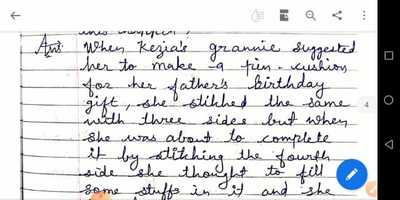 Ans: When Kezia's grannie suggested
her to make a pin-cushion
for her father's birthday
gift, she stitched the same
with three sides but when
she was about to complete
it by stitching the fourth
side she thought to fill
some stuffs in it and she
4